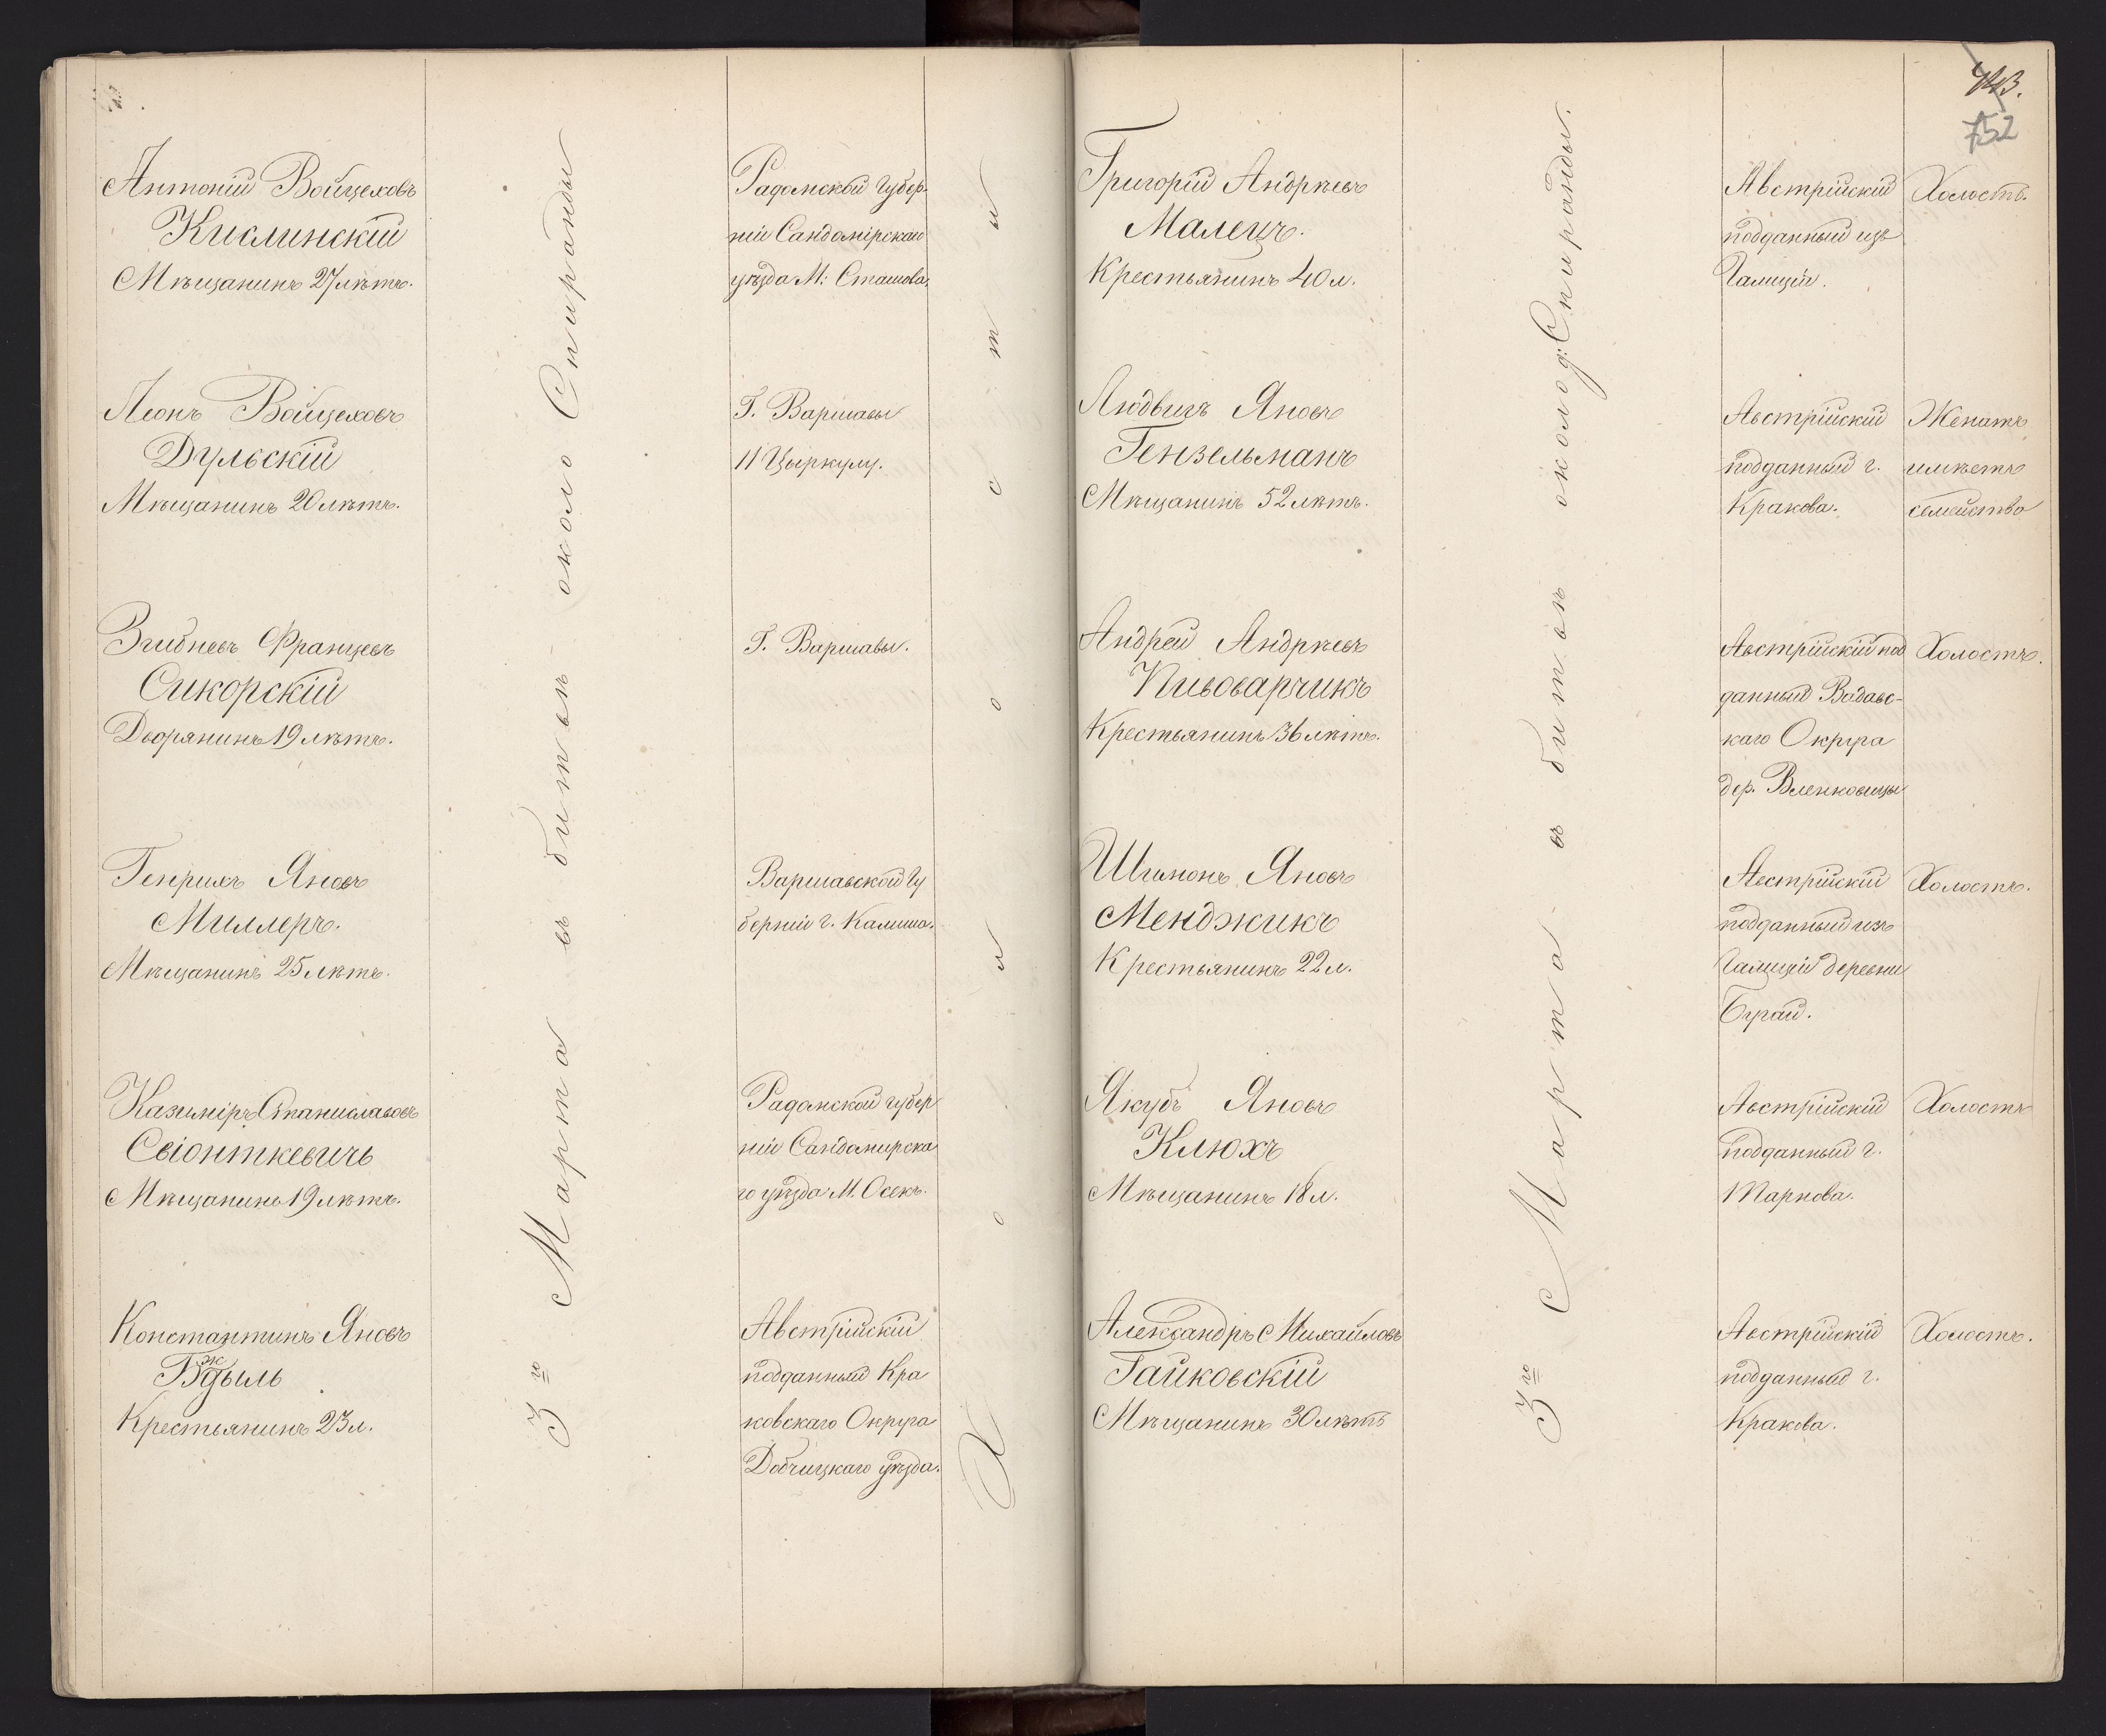 Антоній Войцеховъ
Кислинскій
Мѣщанинъ 27 лѣтъ.
Леонъ Войцеховъ
Дульскій
Мѣщанинъ 20 лѣтъ.
Згибневъ Францевъ
Сикорскій
Дворянинъ 19 лѣтъ.
Генрихъ Яновъ
Миллеръ.
Мѣщанинъ 25 лѣтъ.
Казиміръ Станиславовъ
Свіонткевичъ
Мѣщанинъ 19 лѣтъ.
Константинъ Яновъ
Крестьянинъ 23 л.
3го Марта въ битвѣ около Скипранды
Радомской Губер-
ніи Сандомірскаго
уѣзда М: Сташова.
Г. Варшавы
11 Цыркулу.
Г. Варшавы.
Варшавской Гу
берніи г. Калиша.
Радомской губер
ніи Сандомирска
го уѣзда М. Осекъ.
Австрійскій
подданный Кра
ковскаго Округа
Добчицкаго уѣзда.
Холосты
443.
752
Григорій Андреевъ
Малецъ.
Крестьянинъ 40 л.
Людвигъ Яновъ
Гензельманъ
Мѣщанинъ 52 лѣтъ.
Андрей Андреевъ
Пивоварчикъ
Крестьянинъ 36 лѣтъ.
Шимонъ Яновъ
Менджикъ
Крестьянинъ 22 л.
Якубъ Яновъ
Клюхъ
Мѣщанинъ 18 л.
Александръ Михайловъ
Гайковскій
Мѣщанинъ 30 лѣтъ
3го Марта въ битвѣ около д: Скипранды.
Австрійскій
подданный изъ
Галиціи.
Австрійскій
подданный г.
Кракова.
Австрійскій под
данный Вадавс-
каго Округа
дер.
Австрійскій
подданный изъ
Галиціи деревни
Бугай.
Австрійскій
подданный г.
Тарнова.
Австрійскій
подданный г.
Кракова.
Холостъ.
Женатъ
имѣетъ
семейство
Холостъ.
Холостъ.
Холостъ
Холостъ.